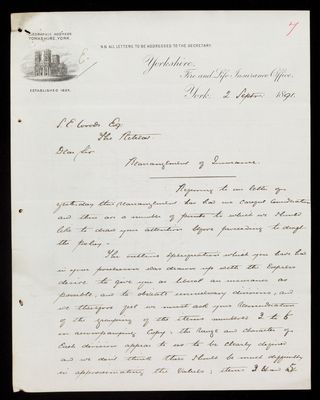 7
TELEGRAPHIC ADDRESS
"YORKSHIRE, YORK."
N.B. ALL LETTERS TO BE ADDRESSED TO THE SECRETARY.
Yorkshire
Fire and Life Insurance Office,
ESTABLISHED 1824.
York, 2 Septr 1891.
S. E. Woods Esq
The Retreat
Dear Sir
Rearrangement of Insurance.
Referring to our letter of
yesterday this Rearrangement has had our careful Consideration
and there are a number of points to which we should
like to draw your attention before proceeding to draft
the policy.
The written specification which you have had
in your possession was drawn up with the Express
desire to give you as liberal an insurance as
possible, and to obviate unnecessary divisions, and
we therefore feel we must ask your Reconsideration
of the grouping of the items numbered 2 to 6
in accompanying Copy. The Range and character of
Each division appear to us to be clearly defined
and we don't think there should be much difficulty
in approximating the Values; items 3